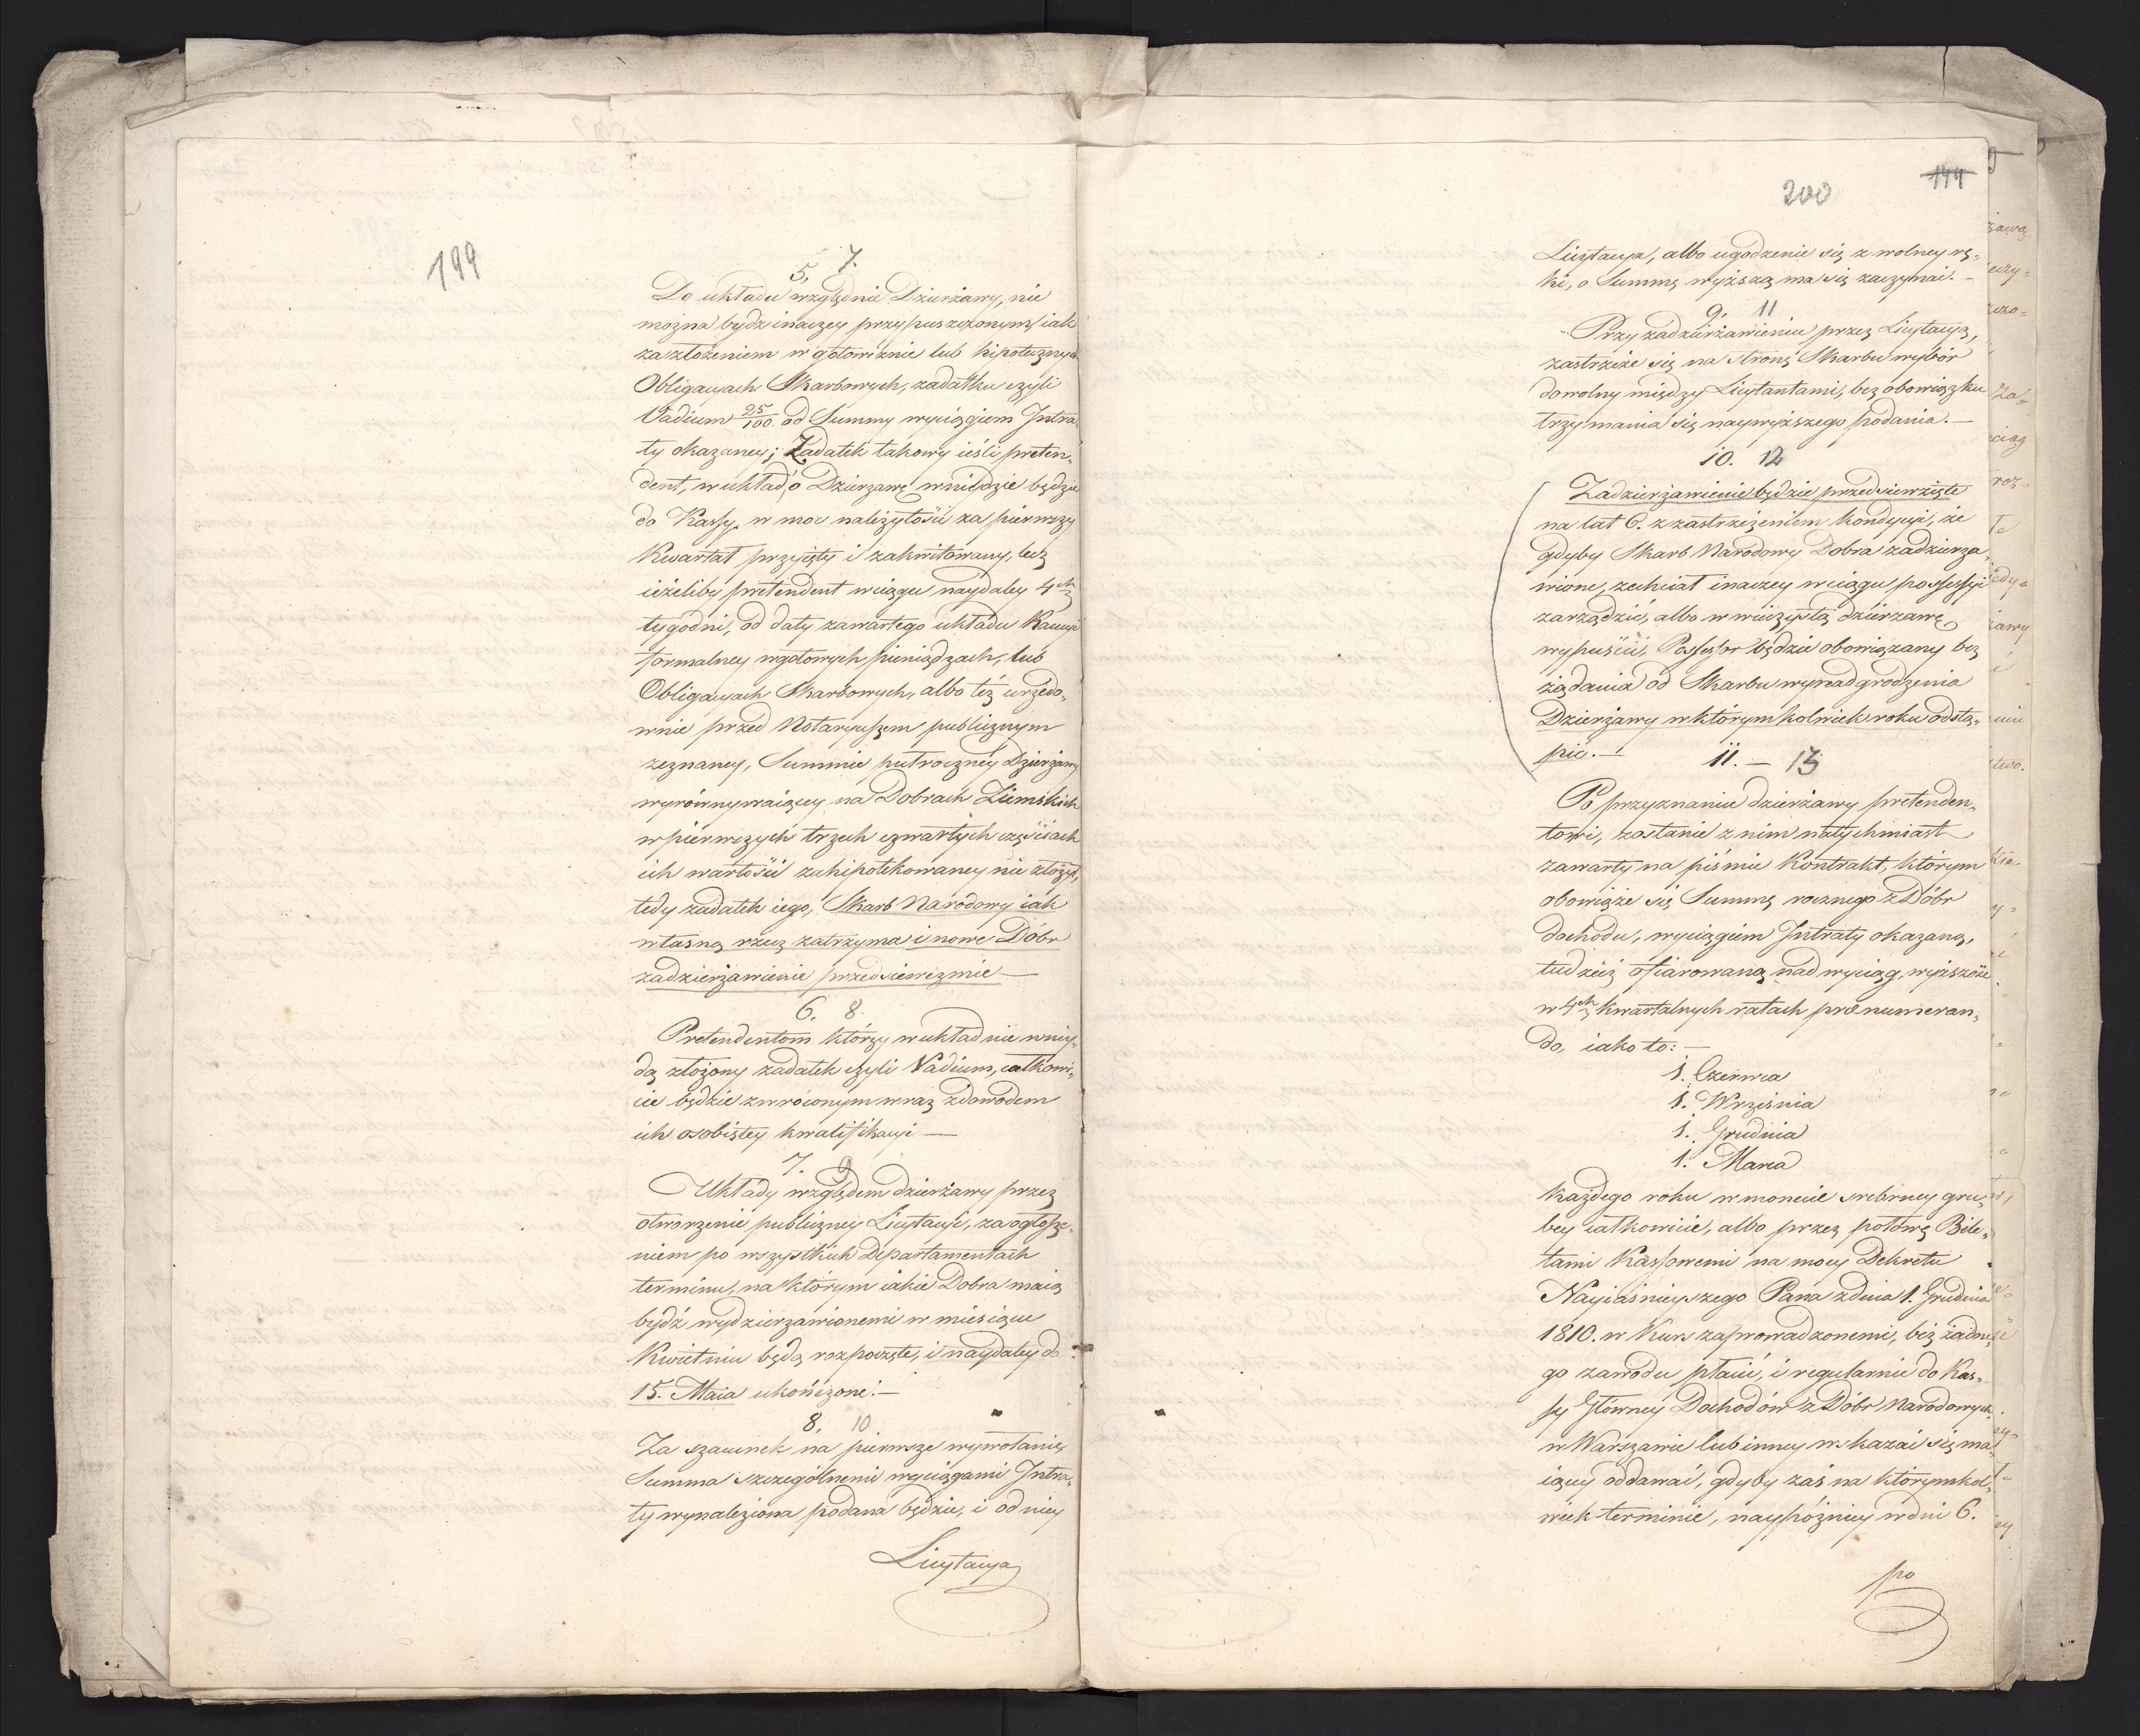 199
5. 7.
Do układu względnie Dzierżawy, nie
można bydz inaczey przypuszczonym, iak
za złożeniem w gotowiznie lub hipotecznych
Obligacyach Skarbowych, zadatku czyli
Vadium 25/100 od Summy wyciągiem Intra„
ty okazaney; Zadatek takowy ieśli preten„
dent, w układ o Dzierzawę wniydzie będzie
do Kassy w moc należytości za pierwszy
Kwartał przyięty i zakwitowany, lecz
ieżeliby pretendent w ciągu naydaley 4ch
tygodni, od daty zawartego układu Kaucyi
formalney w gotowych pieniądzach, lub
Obligacyach Skarbowych, albo też urzędo„
wnie przed Notaryuszem publicznym
zeznaney, Summie putroczney Dzierżawy
wyrównywaiącey na Dobrach Ziemskich
w pierwszych trzech czwartych częściach
ich wartości zahipotekowaney nie złożył,
tedy zadatek iego, Skarb Narodowy iak
własną rzecz zatrzyma i nowe Dóbr
zadzierżawienie przedsiewezmie —
6. 8.
Pretendentom którzy w układ nie wniy„
dą złożony zadatek czyli Vadium, całkowi„
cie będzie zwróconym wraz z dowodem
ich osobistey kwalifikacyi —
7. 9
Układy względem dzierżawy przez
otworzenie publiczney Licytacyi, za ogłosze„
niem po wszystkich Departamentach
terminu, na którym iakie Dobra maią
bydź wydzierzawionemi w miesiącu
Kwietniu będą rozpoczęte, i naydaley do
15. Maia ukończone. —
8. 10
Za szacunek na pierwsze wywołanie,
Summa szczególnemi wyciągami Intra„
ty wynaleziona podana będzie, i od niey
Licytacya
200
199
Licytacya, albo ugodzenie się z wolney rę„
ki, o Summę wyższą ma się zaczynać. —
9. 11
Przy zadzierżawieniu przez Licytacyą,
zastrzeże się na stronę Skarbu wybór
dowolny między Licytantami, bez obowiązku
trzymania się naywyższego podania. —
10. 12
Zadzierżawienie będzie przedsiewzięte
na lat 6. z zastrzeżeniem kondycyi, że
gdyby Skarb Narodowy Dobra zadzierza„
wione, zechciał inaczey w ciągu possessyi
zarządzić, albo w wieczystą dzierzawę
wypuścić, Possessor będzie obowiązany bez
żądania od Skarbu wynadgrodzenia
Dzierżawy w którymkolwiek roku odstą„
pić. —
11. — 13
Po przyznaniu dzierżawy pretenden„
towi, zostanie z nim natychmiast
zawarty na piśmie Kontrakt, którym
obowiąże się Summę rocznego z Dóbr
dochodu, wyciągiem Intraty okazaną,
tudzież ofiarowaną nad wyciąg, wyższość
w 4ch kwartalnych ratach prænumeran„
do, iako to: —
1. Czerwca
1. Września
1. Grudnia
1. Marca
każdego roku w monecie srebrney gru„
bey całkowicie, albo przez połowę Bile„
tami Kassowemi na mocy Dekretu
Nayiaśnieyszego Pana z dnia 1. Grudnia
1810. w Kurs zaprowadzonemi, bez żadne„
go zawodu płacić, i regularnie do Kas„
sy Główney Dochodów z Dóbr Narodowych
w Warszawie lub inney wskazać się ma„
iącey oddawać, gdyby zaś na którymkol„
wiek terminie, naypóźniey w dni 6.
po